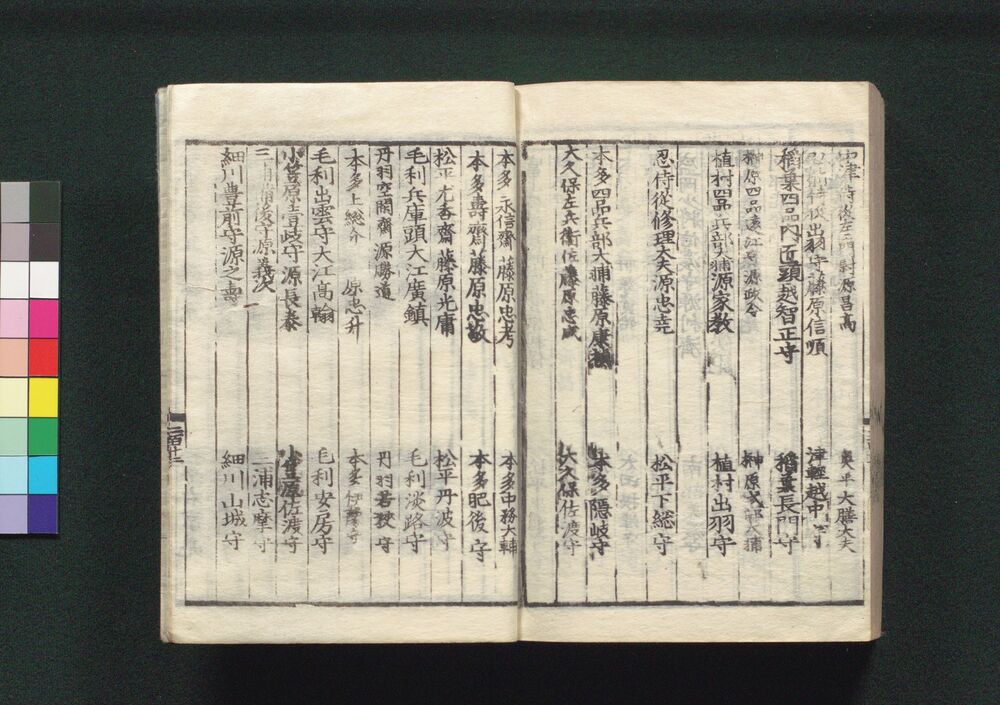 中津侍従左衛門尉源昌高 奥平大膳大夫
出羽守藤原信順 津軽越中守
稲葉四品内匠頭越智正守 稲葉長門守
榊原四品遠江守源政令 榊原式部大輔
植村四品兵部大輔源家教 植村出羽守
忍侍從修理大夫源忠堯 松平下総守
本多四品兵部大輔藤原康 本多隠岐守
大久保左兵衛佐藤原忠成 大久保佐渡守
本多永信齋藤原忠考 本多中務大輔
本多壽齋藤原忠敬 本多肥後守
松平 齋藤原光庸 松平丹波守
毛利兵庫頭大江廣鎮 毛利淡路守
丹羽空閑齋源勝道 丹羽若狭守
本多上総介 原忠升 本多伊豫守
毛利出雲守大江高翰 毛利安房守
小笠原壹岐守源長泰 小笠原佐渡守
三浦備後守源義次 三浦志摩守
細川豊前守源之壽 細川山城守
二百廿二